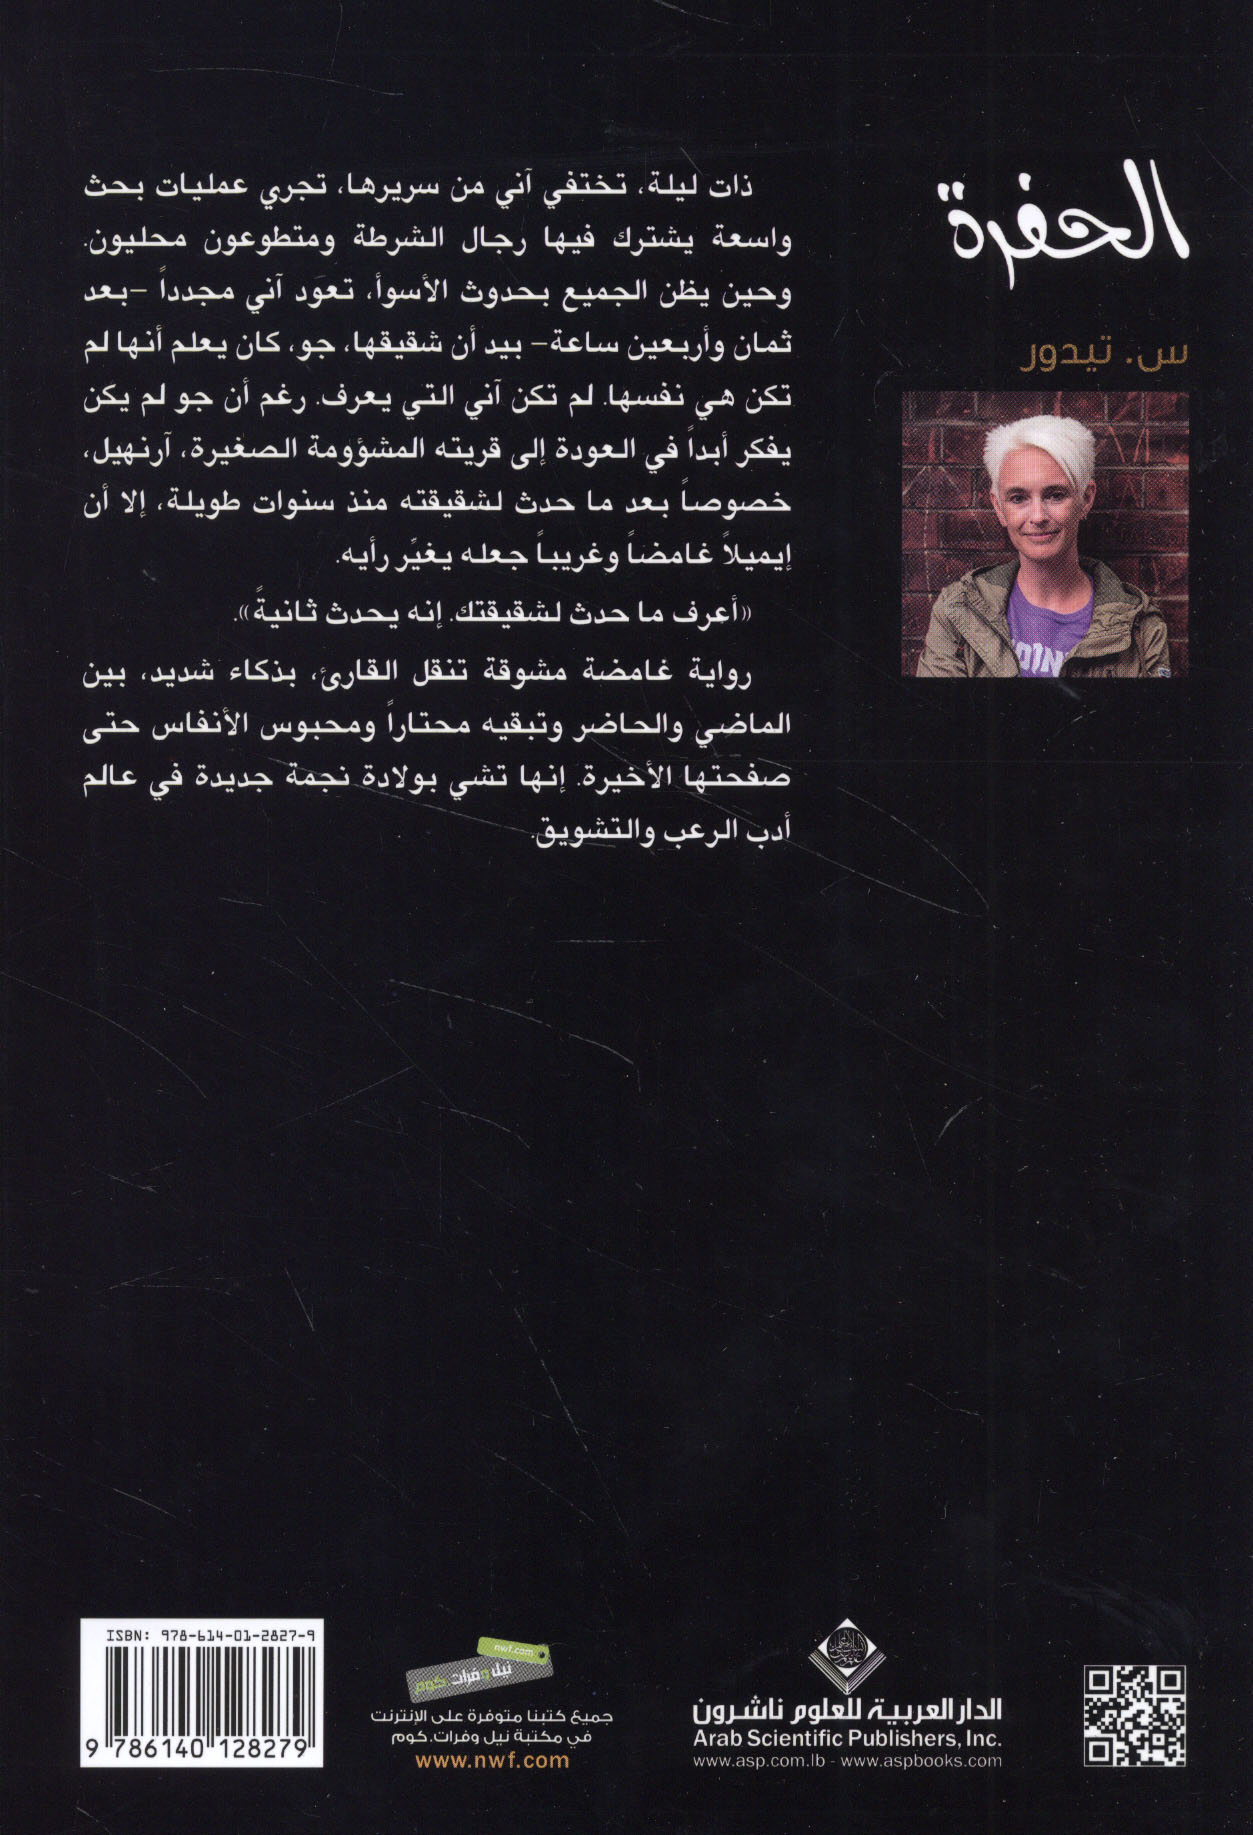 الحفرة
س. تيدور
ذات ليلة، تختفي آني من سريرها، تجري عمليات بحث
واسعة يشترك فيها رجال الشرطة ومتطوعون محليون.
وحين يظن الجميع بحدوث الأسوأ، تعود آني مجدداً -بعد
ثمان وأربعين ساعة- بيد أن شقيقها، جو، كان يعلم أنها لم
تكن هي نفسها. لم تكن آني التي يعرف. رغم أن جو لم يكن
يفكر أبداً في العودة إلى قريته المشؤومة الصغيرة، آرنهيل،
خصوصاً بعد ما حدث لشقيقته منذ سنوات طويلة، إلا أن
إيميلاً غامضاً وغريباً جعله يغيِّر رأيه.
«أعرف ما حدث لشقيقتك. إنه يحدث ثانيةً».
رواية غامضة مشوقة تنقل القارئ، بذكاء شديد، بين
الماضي والحاضر وتبقيه محتاراً ومحبوس الأنفاس حتى
صفحتها الأخيرة. إنها تشي بولادة نجمة جديدة في عالم
أدب الرعب والتشويق.
الدار العربية للعلوم ناشرون
Arab Scientific Publishers, Inc.
www.asp.com.lb - www.aspbooks.com
nwf.com
نيل وفرات.كوم
جميع كتبنا متوفرة على الإنترنت
في مكتبة نيل وفرات.كوم
www.nwf.com
ISBN: 978-614-01-2827-9
9 786140 128279